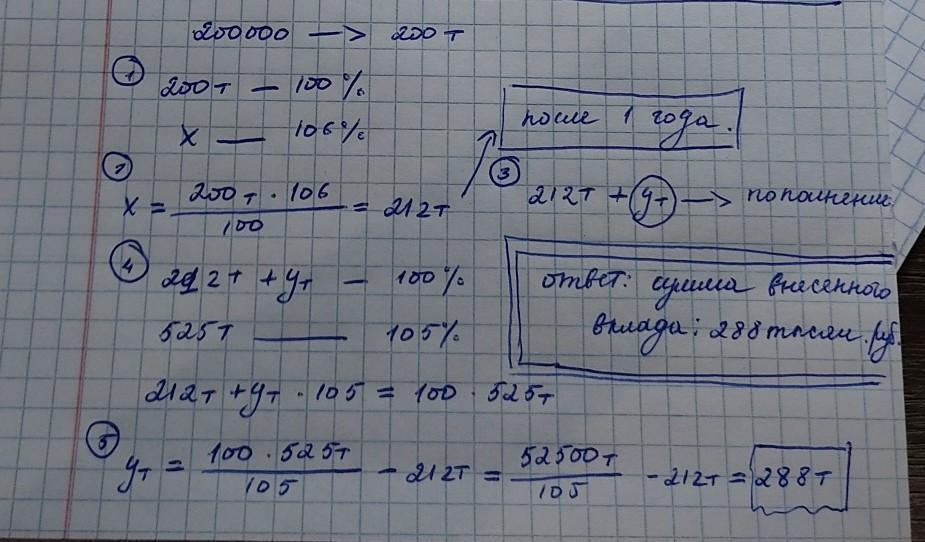 200000 —> 200т
① 200т — 100%
х — 106%
② х = 200т · 106 / 100 = 212т
после 1 года.
③ 212т + ут —> пополнение
④ 212т + ут — 100%
525т — 105%
212т + ут · 105 = 100 · 525т
ответ: сумма внесенного
вклада: 288 тысяч. руб.
⑤ ут = 100 · 525т / 105 - 212т = 52500т / 105 - 212т = 288т